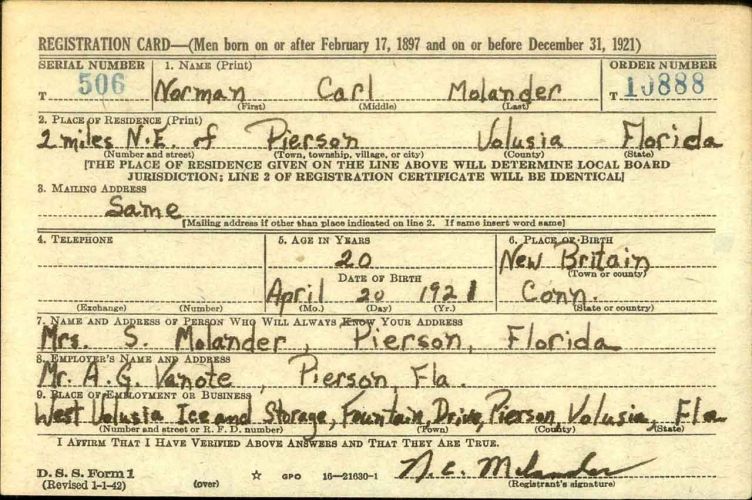 REGISTRATION CARD—(Men born on or after February 17, 1897 and on or before December 31, 1921)
SERIAL NUMBER 1. NAME (Print) ORDER NUMBER
T 506 Norman Carl Molander T 10888
(First) (Middle) (Last)
2. PLACE OF RESIDENCE (Print)
2 miles N.E. of Pierson Volusia Florida
(Number and street) (Town, township, village, or city) (County) (State)
[THE PLACE OF RESIDENCE GIVEN ON THE LINE ABOVE WILL DETERMINE LOCAL BOARD
JURISDICTION; LINE 2 OF REGISTRATION CERTIFICATE WILL BE IDENTICAL]
3. MAILING ADDRESS
Same
[Mailing address if other than place indicated on line 2. If same insert word same]
4. TELEPHONE 5. AGE IN YEARS 6. PLACE OF BIRTH
20 New Britain
(Town or county)
DATE OF BIRTH
April 20 1921 Conn.
(Exchange) (Number) (Mo.) (Day) (Yr.) (State or country)
7. NAME AND ADDRESS OF PERSON WHO WILL ALWAYS KNOW YOUR ADDRESS
Mrs. S. Molander, Pierson, Florida
8. EMPLOYER'S NAME AND ADDRESS
Mr. A.G. Vanote, Pierson, Fla.
9. PLACE OF EMPLOYMENT OR BUSINESS
West Volusia Ice and Storage, Fountain, Drive, Pierson, Volusia, Fla
(Number and street or R. F. D. number) (Town) (County) (State)
I AFFIRM THAT I HAVE VERIFIED ABOVE ANSWERS AND THAT THEY ARE TRUE.
D. S. S. Form 1
(Revised 1-1-42) (over) ☆ GPO 16—21630-1 N.C. Molander
(Registrant's signature)